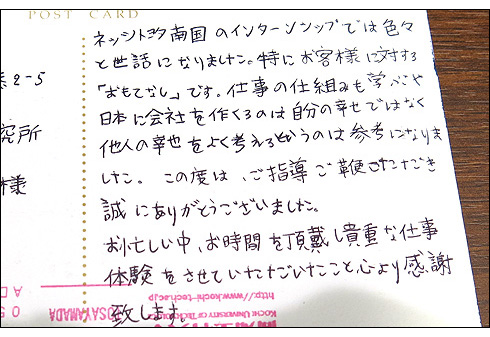 POST CARD
ネッツトヨタ南国のインターンシップでは色々
と世話になりました。特にお客様に対する
「おもてなし」です。仕事の仕組みも学べや
日本に会社を作くるのは自分の幸せではなく
他人の幸せをよく考えるというのは参考になりま
した。この度は、ご指導ご鞭さいただき
誠にありがとうございました。
お忙しい中、お時間を頂戴し貴重な仕事
体験をさせていただいたこと心より感謝
致します。
2-5
究所
様
http://www.kochi-tech.ac.jp
KOCHI UNIVERSITY OF TECHNOLOGY
OSAYAMADA